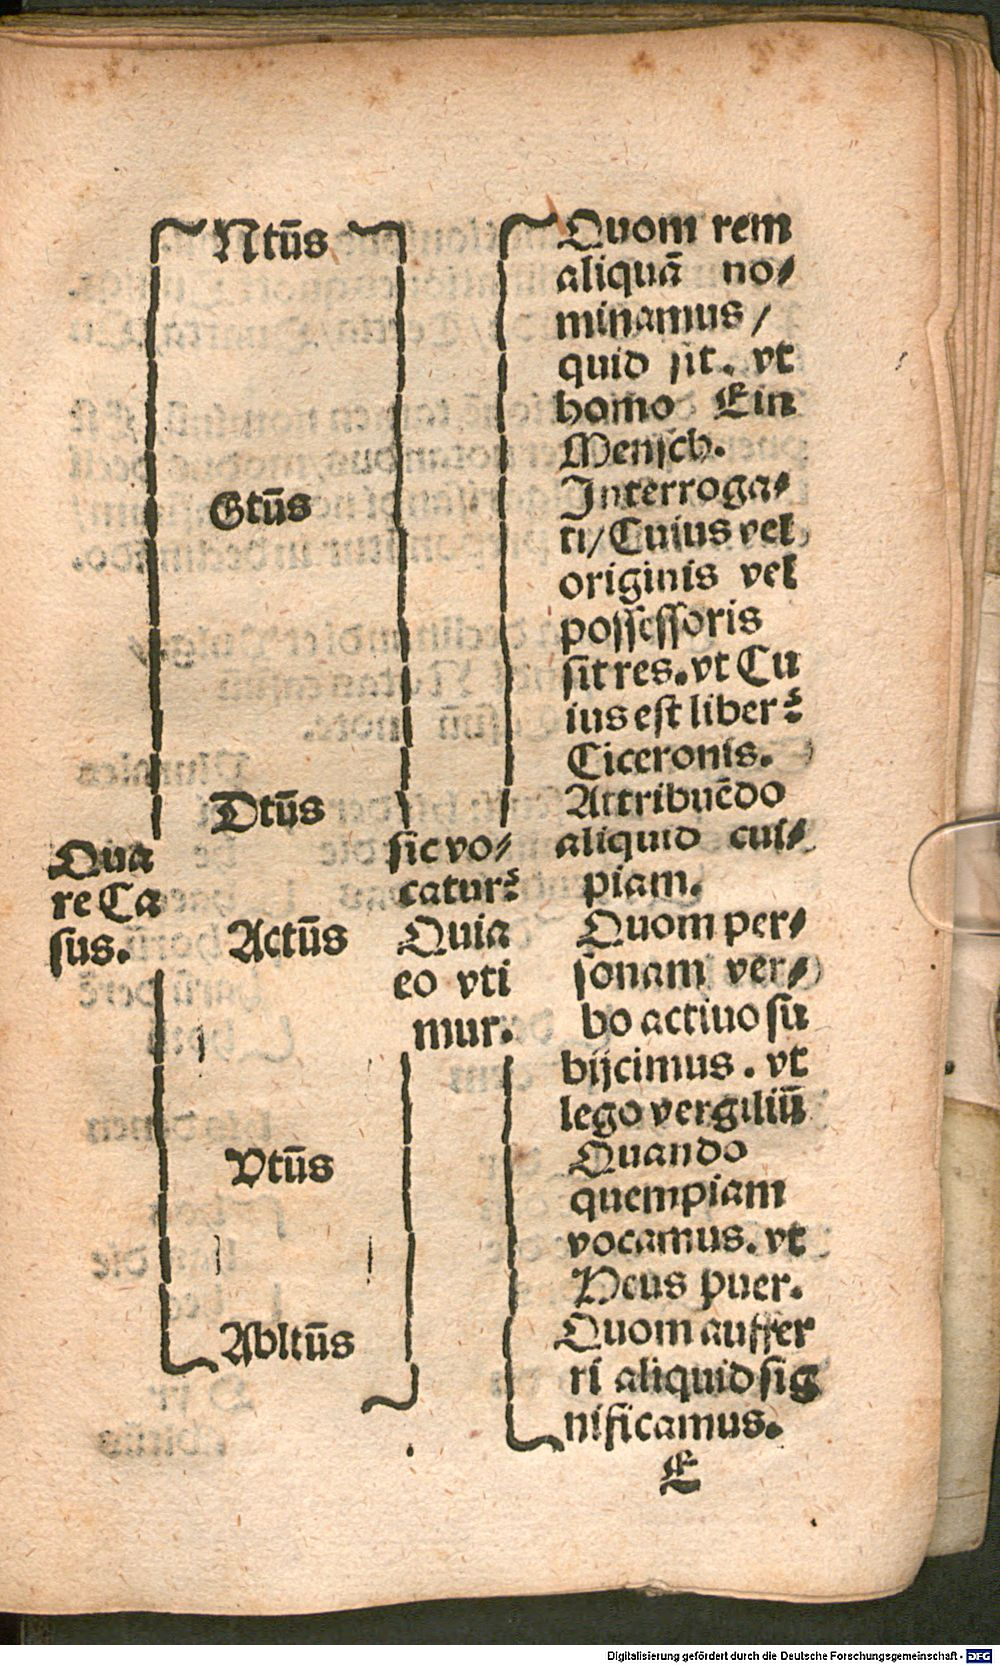 Qua
re Ca
sus.
Ntūs
Gtūs
Dtūs
Actūs
Vtūs
Abltūs
sic vo⸗
catur?
Quia
eo vti
mur.
Quom rem
aliquā no⸗
minamus /
quid sit. vt
homo Ein
Mensch.
Interroga⸗
ti/ Cuius vel
originis vel
possessoris
sit res. vt Cu
ius est liber?
Ciceronis.
Attribuēdo
aliquid cui⸗
piam.
Quom per⸗
sonam ver⸗
bo actiuo su
bijcimus. vt
lego vergiliū
Quando
quempiam
vocamus. vt
Heus puer.
Quom auffer
ri aliquid sig
nificamus.
E
Digitalisierung gefördert durch die Deutsche Forschungsgemeinschaft - DFG